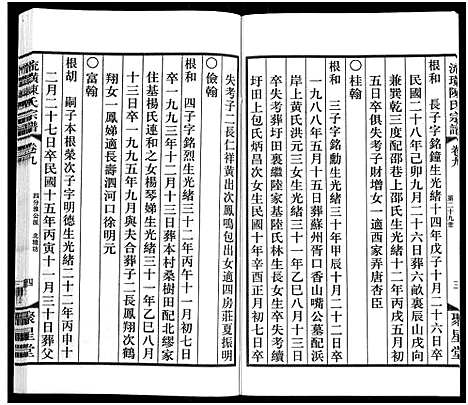 流璜陳氏宗譜 卷九
第二十九世
三
聚星堂
根和 長子字銘鐘生光緒十四年戊子十月二十二日卒
民國二十八年己卯九月二十六日葬六畝裏辰山戌向
兼巽乾三度配邵巷上邵氏生光緒十三年丁亥二月十
五日卒俱失考子財增女一適西家弄唐杏臣
○桂翰
根和 三子字銘勳生光緒三十年甲辰十月二十日卒一
九八八年五月十五日葬蘇州胥口香山嘴公墓配浜
岸上黃氏洪元三女生光緒三十一年乙巳十一月初七
日卒失考葬蘇州陸家基繼陸氏林長女生卒失考續
圩田上包氏炳昌次女生民國十年辛酉正月二十日卒
失考子二長仁祥黃出次鳳鳴包出女適四房莊夏振明
○儉翰
根和 四子字銘烈生光緒三十二年丙午十一月初七日
卒一九九三年十二月十三日葬本村桑樹田配北繆家
住基楊氏連和之女楊琴娣生光緒三十一年乙巳八月
十三日卒一九九五年九月與夫合葬子二長鳳翔次鶴
翔女一鳳娣適長壽泗河口徐明元
○富翰
根胡 嗣子本根榮次子字明德生光緒二十二年丙申十
二月二十七日卒民國十五年丙寅十一月三十日葬父
流璜陳氏宗譜 卷九
四分雅公派 北塘坊
四
聚星堂